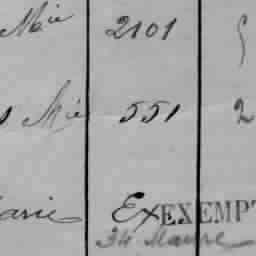 Mie 2101
s Mie 551 2
arie Ex EXEMPT
34 Maure